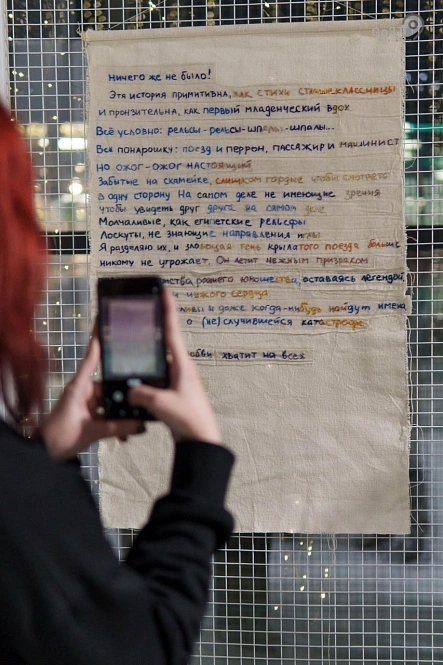 Ничего же не было!
Эта история примитивна, как стихи старшеклассницы
и пронзительна, как первый младенческий вдох
Всё условно: рельсы-рельсы-шпалы-шпалы...
Всё понарошку: поезд и перрон, пассажир и машинист
но ожог-ожог настоящий
Забытые на скамейке, слишком гордые чтобы смотреть
в одну сторону На самом деле не имеющие зрения
чтобы увидеть друг друга на самом деле
Молчаливые, как египетские рельефы
Лоскуты, не знающие направления иглы
Я разделяю их, и зловещая тень крылатого поезда больше
никому не угрожает. Он летит нежным призраком
нства раннего юношества, оставаясь легендой,
и чужого сердца
и даже когда-нибудь найдут имена
о (не)случившейся катастрофе
юбви хватит на всех